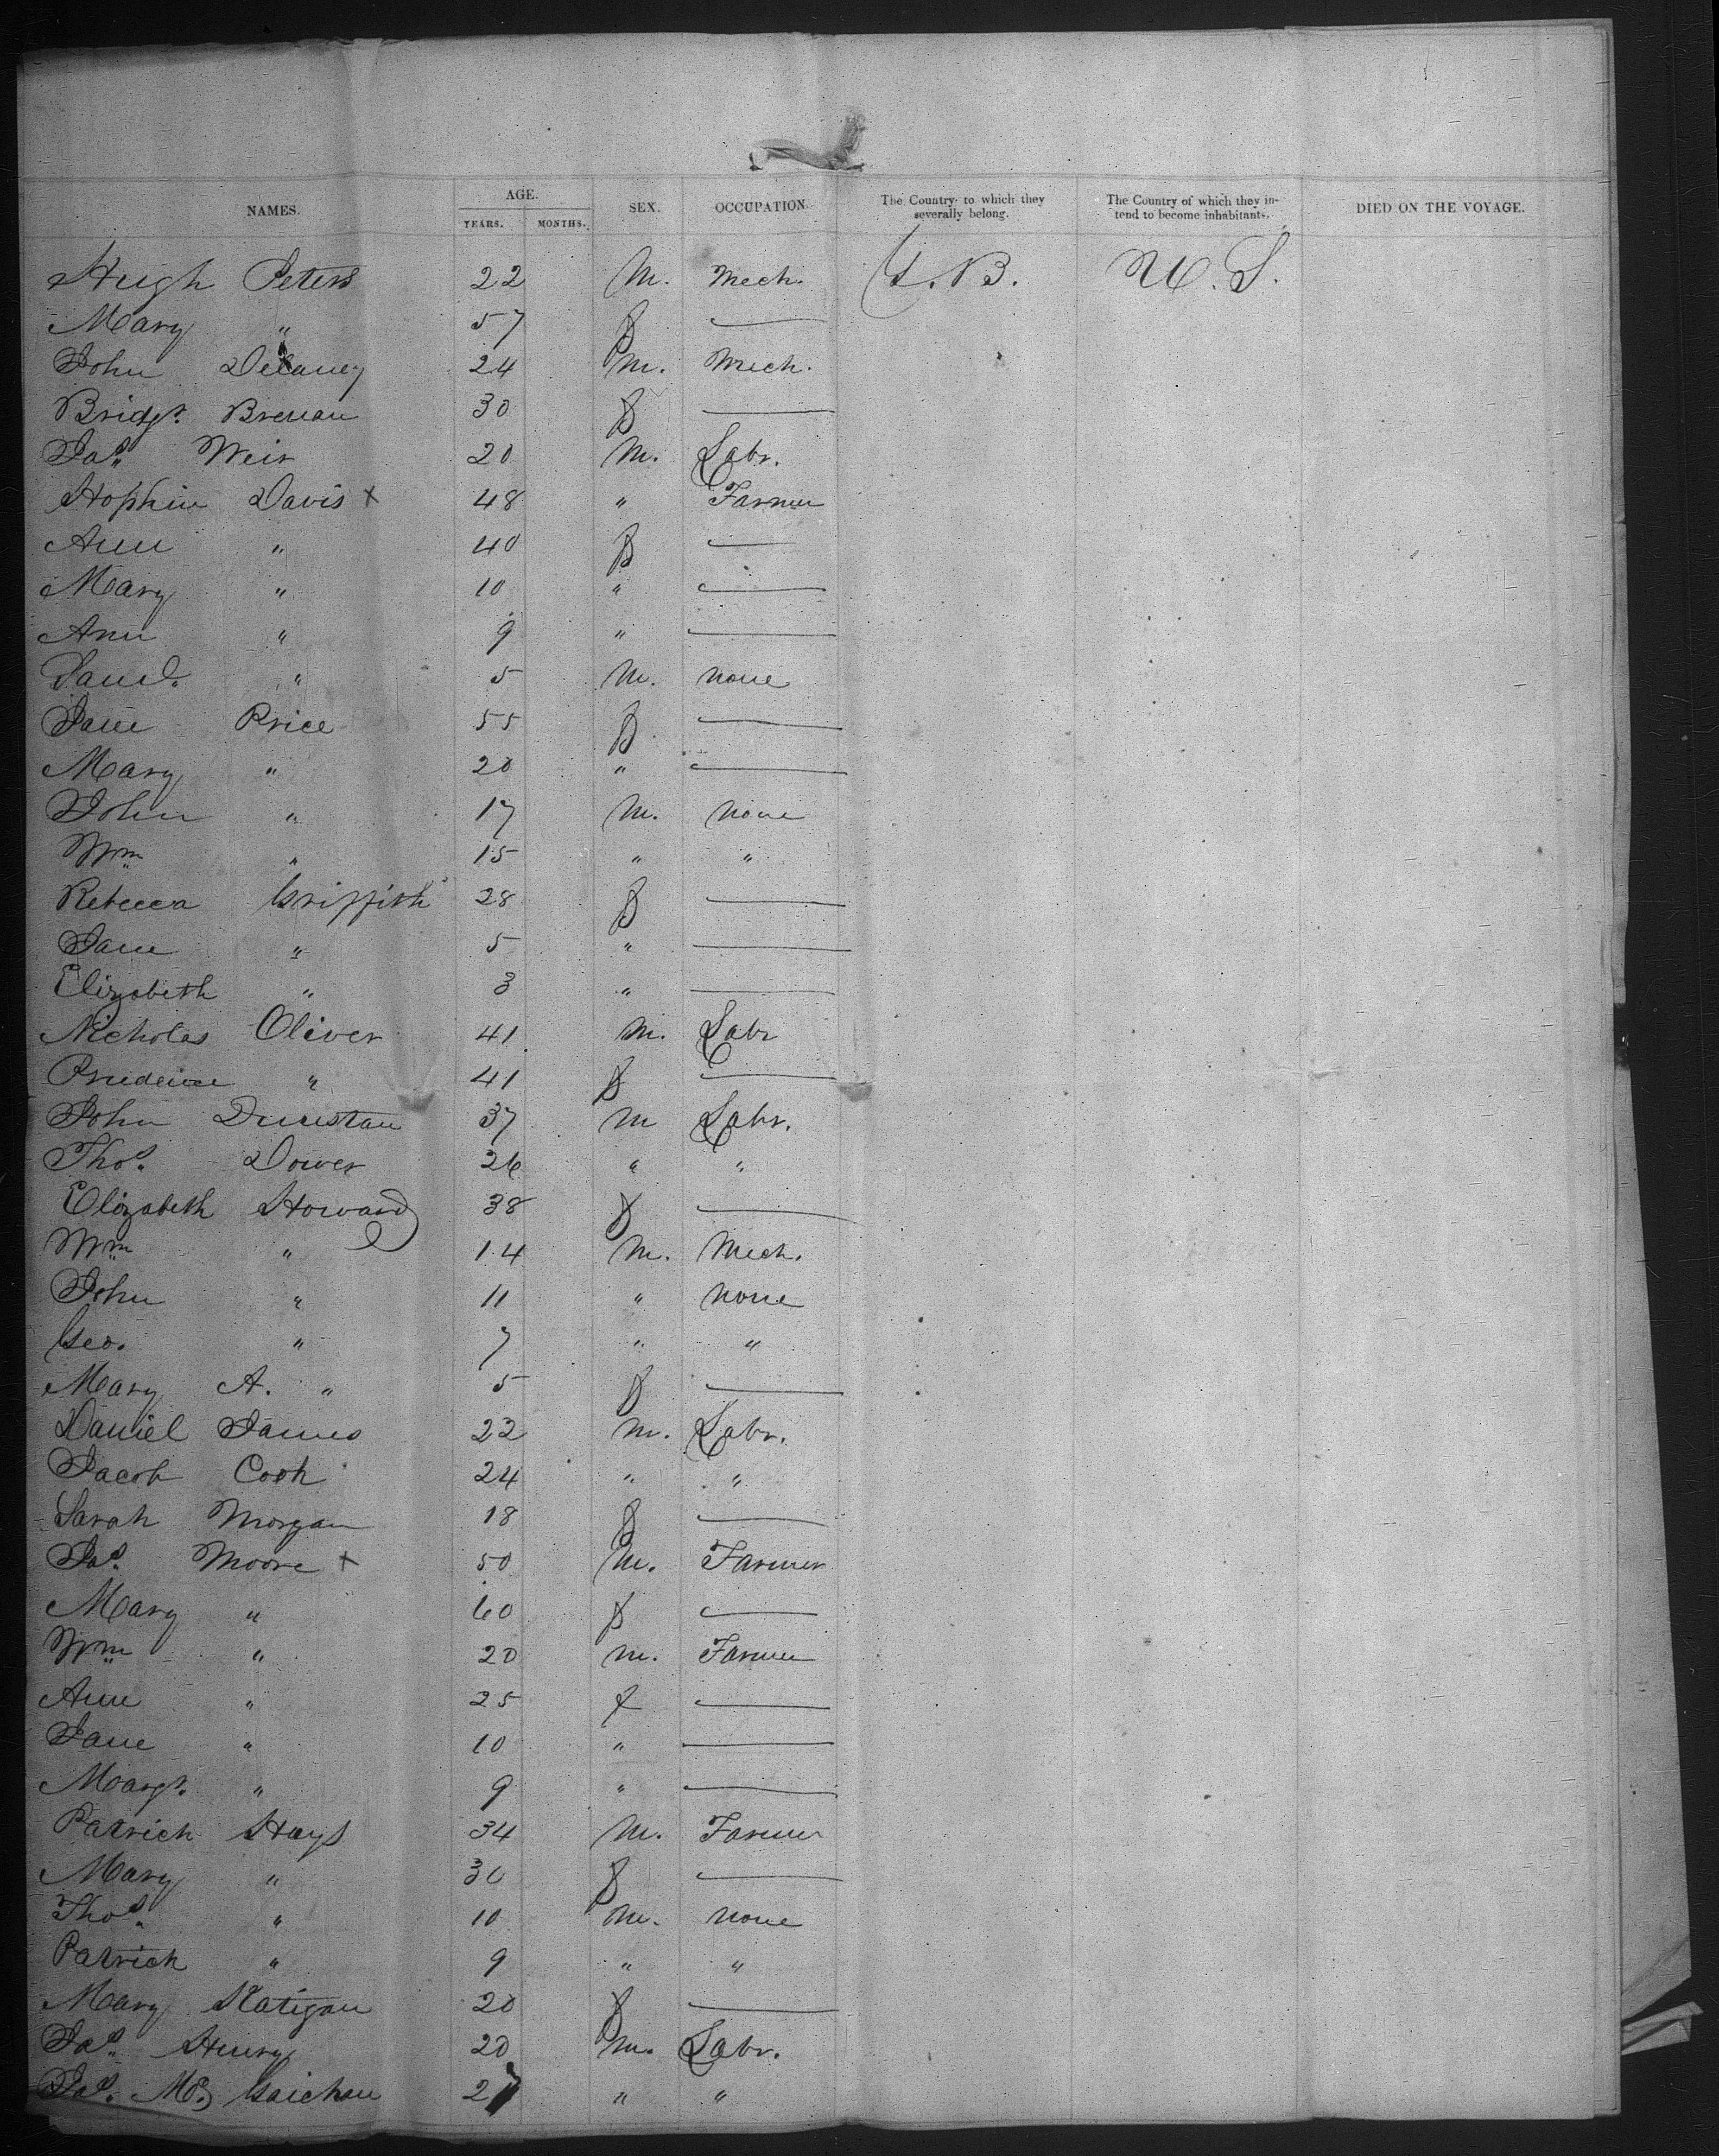 NAMES. AGE. SEX. OCCUPATION. The Country to which they severally belong. The Country of which they intend to become inhabitants. DIED ON THE VOYAGE.
YEARS. MONTHS.
Hugh Peters 22 M. Mech. G.B. U.S.
Mary " 57 f —
John Delaney 24 M. Mech.
Bridgt. Brenan 30 f —
Jas. Weir 20 M. Labr.
Hopkin Davis x 48 " Farmer
Ann " 40 f —
Mary " 10 " —
Ann " 9 " —
" 5 M. none
Jane Price 55 f —
Mary " 20 " —
John " 17 M. none
Wm " 15 " "
Rebecca Griffith 28 f —
Jane " 5 " —
Elizabeth " 3 " —
Nicholas Oliver 41 M. Labr
Prudence " 41 f —
John Dunstan 37 M Labr.
Thos. Dower 26 " "
Elizabeth Howard 38 f —
Wm " 14 M. Mech.
John " 11 " none
Geo. " 7 " "
Mary A. " 5 f —
Daniel James 22 M. Labr.
Jacob Cook 24 " "
Sarah Morgan 18 f —
Jas. Moore x 50 M. Farmer
Mary " 60 f —
Wm " 20 M. Farmer
Ann " 25 f —
Jane " 10 " —
Margt. " 9 " —
Patrick Hays 34 M. Farmer
Mary " 30 f —
Thos. " 10 M. none
Patrick " 9 " "
Mary 20 f —
Jas. Henry 20 M. Labr.
Jas. Mc 27 " "